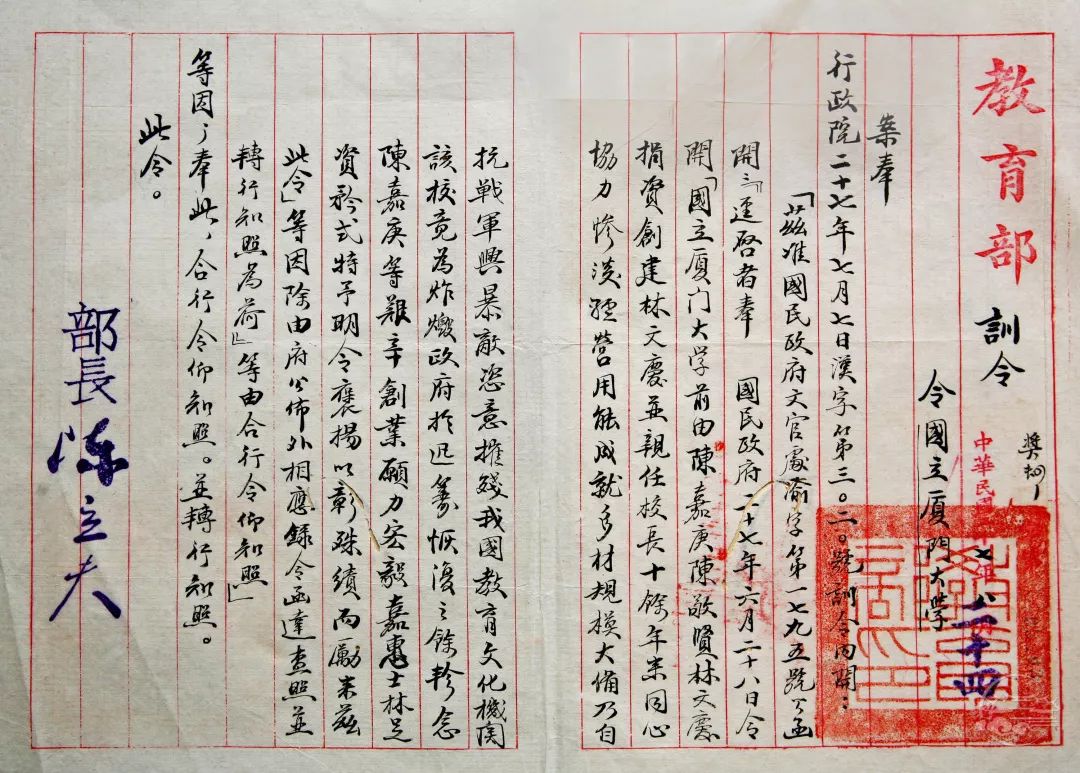 教育部 訓令
中華民國
令國立厦門大學
案奉
行政院二十七年七月七日漢字第三〇二〇號訓令內開：
「茲准國民政府文官處渝字第一七九五號公函
開：『逕啓者奉 國民政府二十七年六月二十八日令
開「國立厦门大学前由陳嘉庚陳敬賢林文慶
捐資創建林文慶並親任校長十餘年來同心
協力慘淡經營用能成就多材規模大備乃自
抗戰軍興暴敵恣意摧殘我國教育文化機関
該校竟為炸燬政府於迅籌恢復之餘軫念
陳嘉庚等艱辛創業願力宏毅嘉惠士林足
資矜式特予明令襃揚以彰殊績而勵来茲
此令」等因除由府公佈外相應錄令函達查照並
轉行知照為荷』等由合行令仰知照」
等因；奉此，合行令仰知照。並轉行知照。
此令。
部長 陳立夫